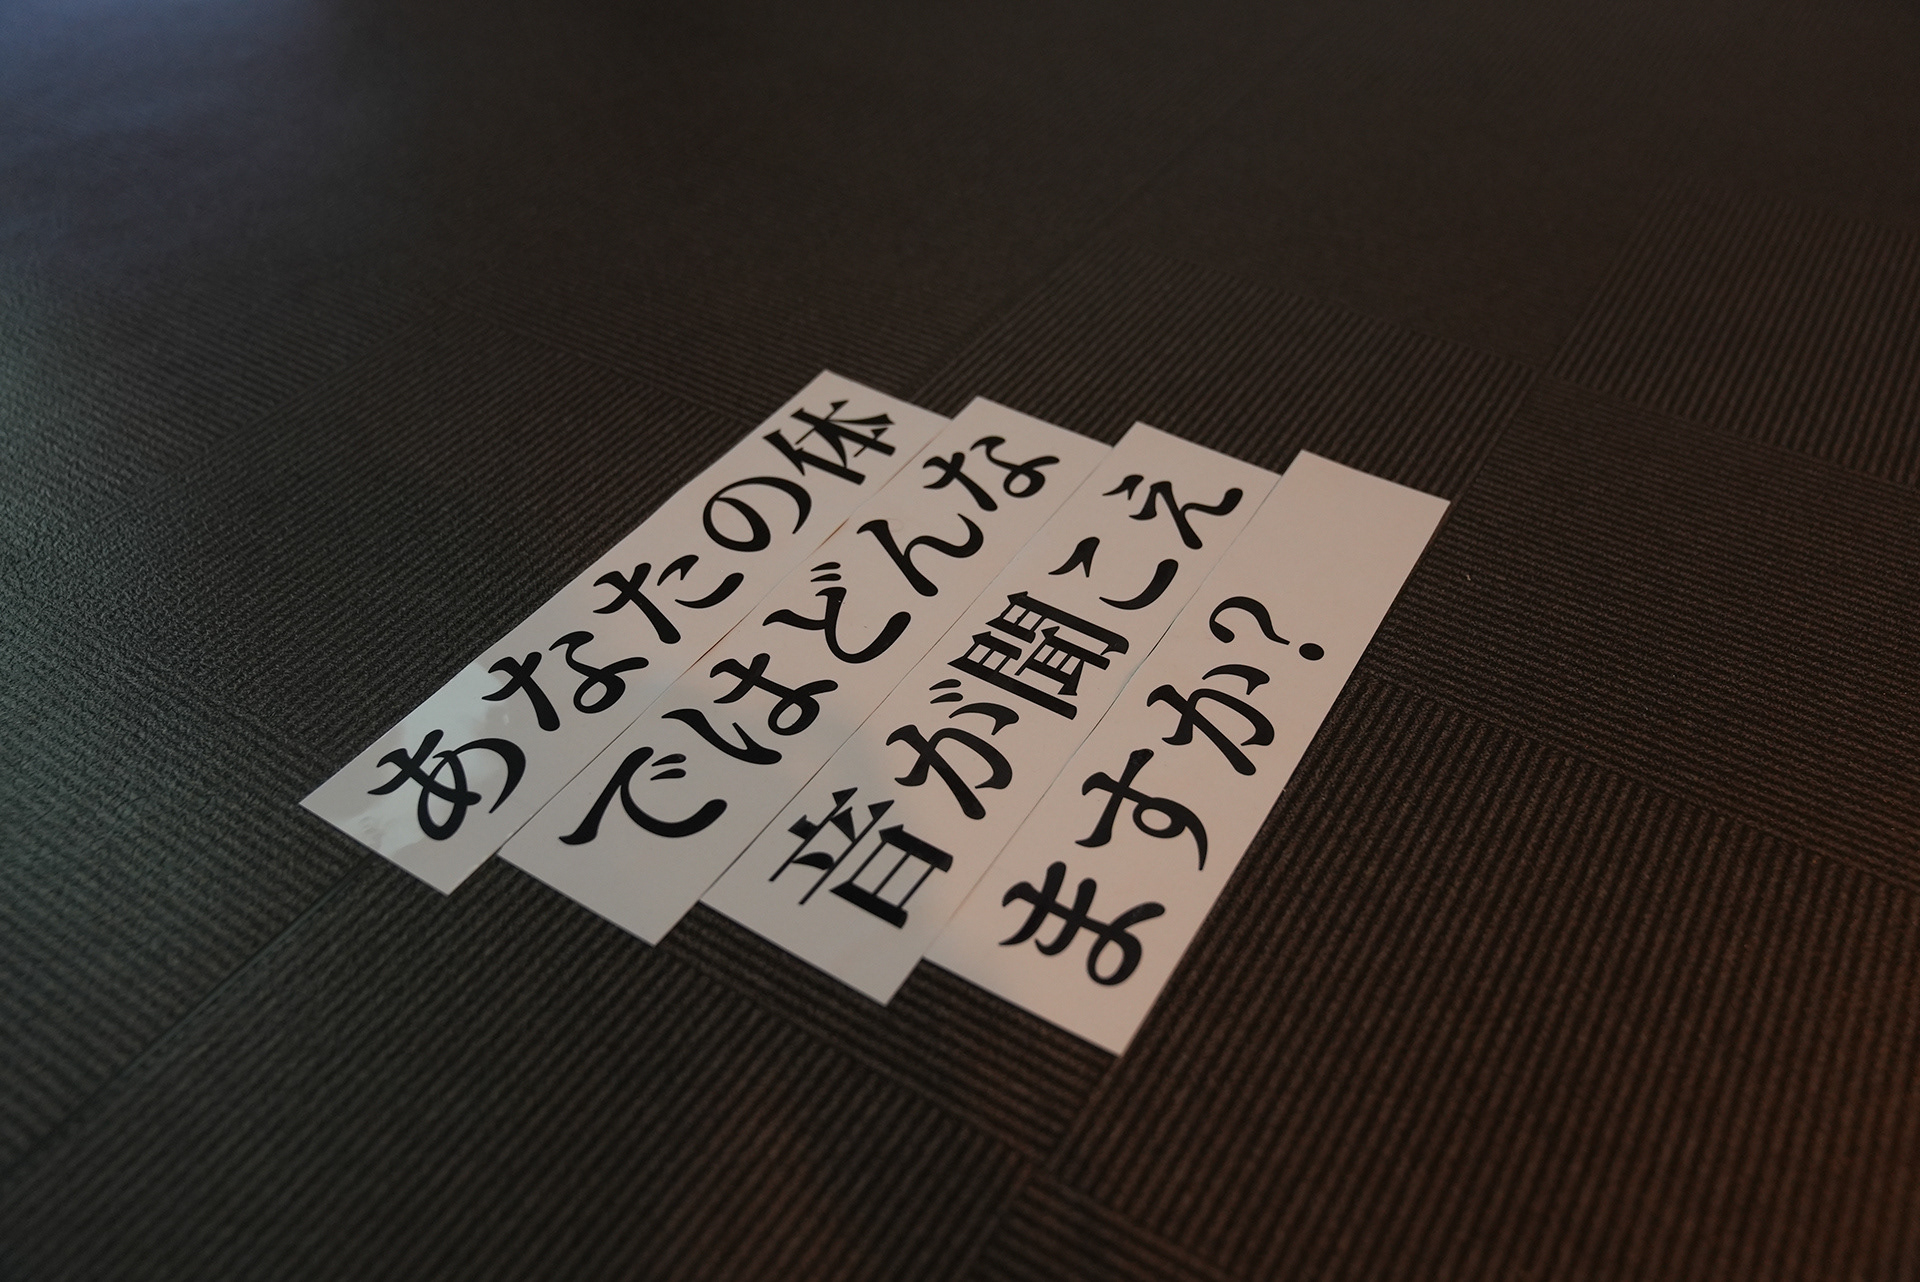 あなたの体
ではどんな
音が聞こえ
ますか?